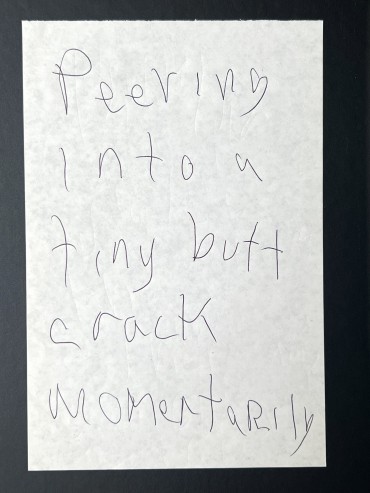 Peering
into a
tiny butt
crack
momentarily